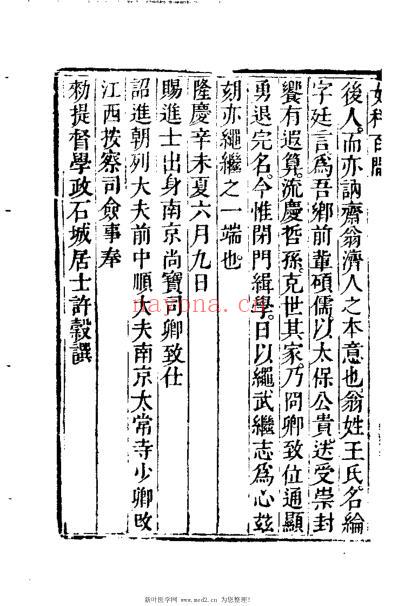 女科百問
後人而亦訥齋翁濟人之本意也翁姓王氏名綸
字廷言爲吾鄉前輩碩儒以太保公貴迭受崇封
饗有遐算流慶哲孫克世其家乃冏卿致位通顯
勇退完名今惟閉門緝學日以繩武繼志爲心兹
刻亦繩繼之一端也
隆慶辛未夏六月九日
賜進士出身南京尚寶司卿致仕
詔進朝列大夫前中順大夫南京太常寺少卿改
江西按察司僉事奉
勑提督學政石城居士許穀譔
nayona.cn
新叶医学网 www.med2.cn 为您整理!